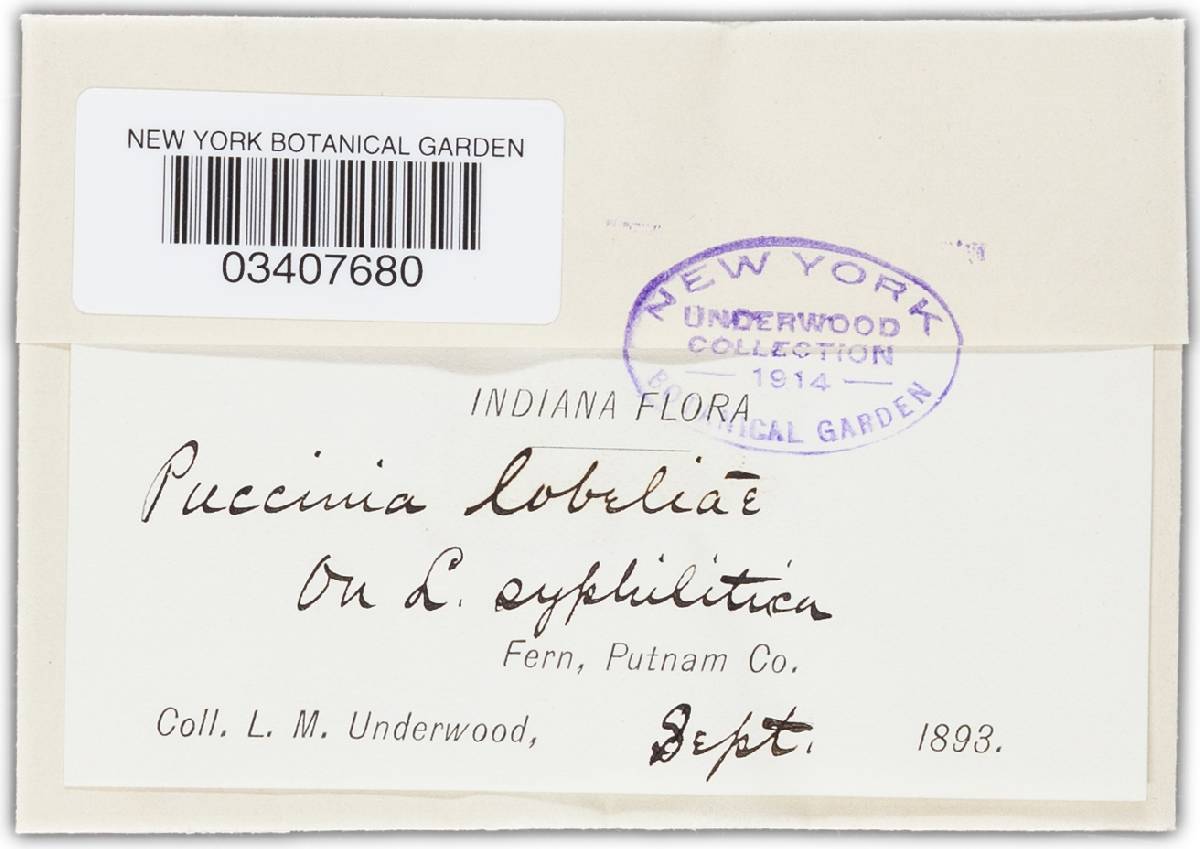 NEW YORK BOTANICAL GARDEN
03407680
NEW YORK
UNDERWOOD
COLLECTION
1914
BOTANICAL GARDEN
INDIANA FLORA
Puccinia lobeliae
On L. syphilitica
Fern, Putnam Co.
Coll. L. M. Underwood, Sept. 1893.